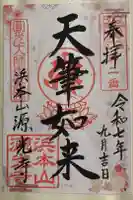 奉拝
令和七年
九月吉日
天筆如来
浜本山源光寺
圓光大師